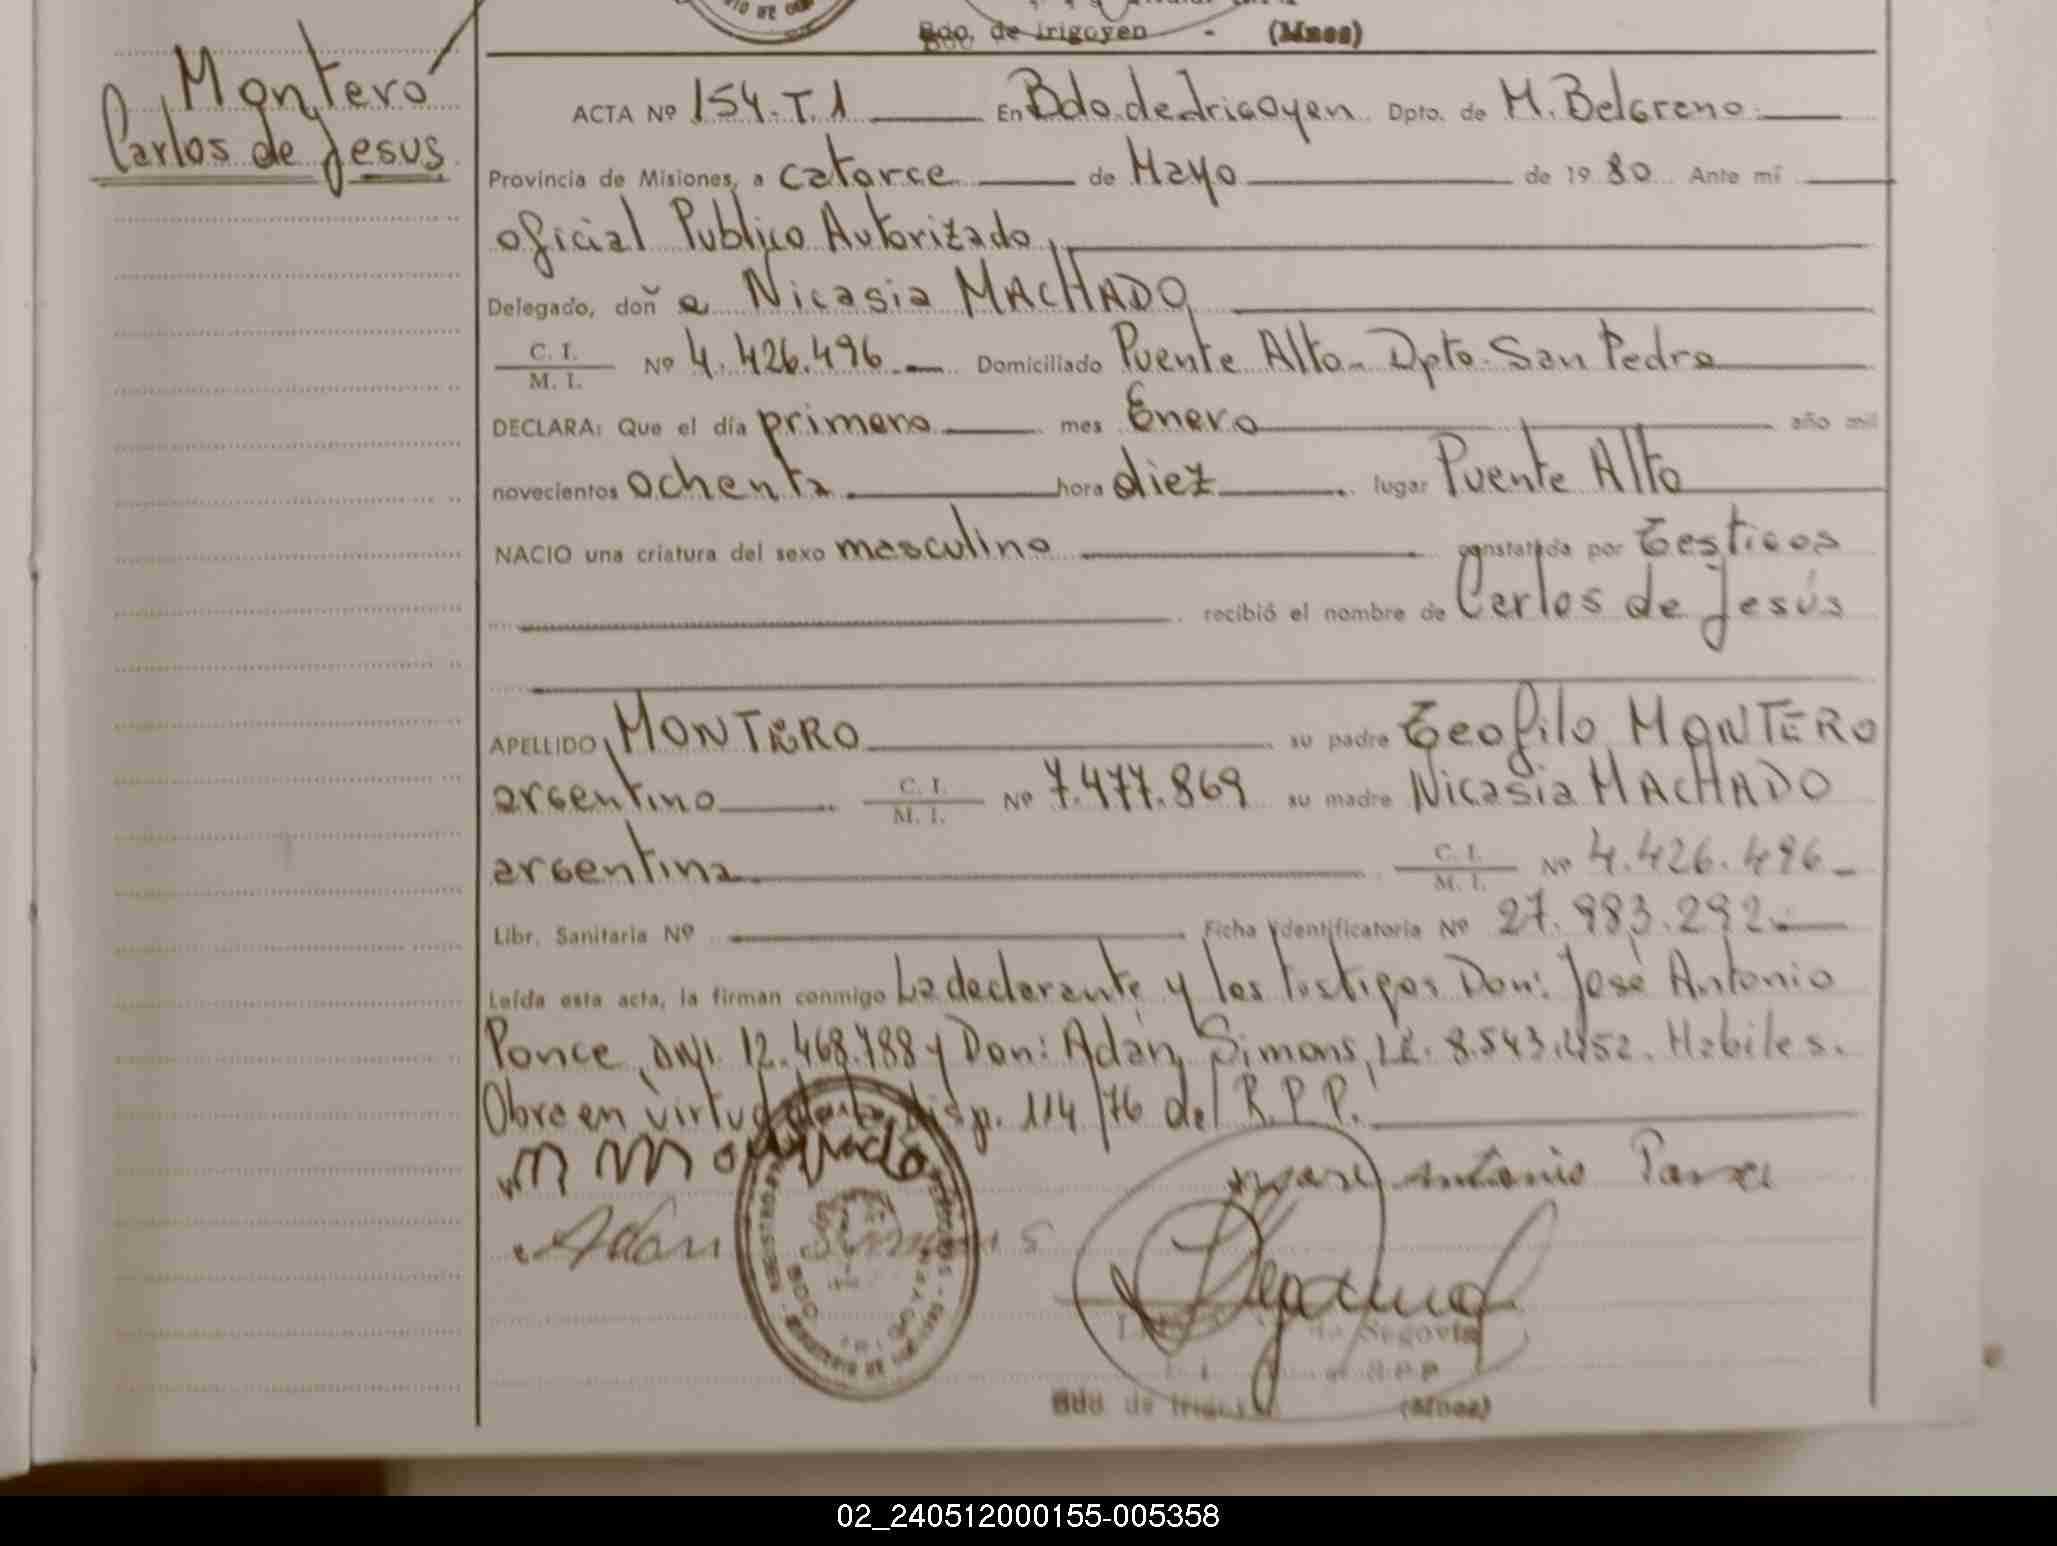 Bdo. de Irigoyen - (Mnes)
Montero
Carlos de Jesus
ACTA Nº 154. T. 1 En Bdo. de Irigoyen Dpto. de M. Belgrano
Provincia de Misiones, a catorce de Mayo de 1980 Ante mí
oficial Publico Autorizado,
Delegado, doña Nicasia MACHADO
C. I. / M. I. Nº 4.426.496 Domiciliado Puente Alto - Dpto. San Pedro
DECLARA: Que el día primero mes Enero año mil
novecientos ochenta hora diez lugar Puente Alto
NACIO una criatura del sexo masculino constatada por Testigos
recibió el nombre de Carlos de Jesús
APELLIDO MONTERO su padre Teofilo MONTERO
argentino C. I. / M. I. Nº 7.477.869 su madre Nicasia MACHADO
argentina C. I. / M. I. Nº 4.426.496
Libr. Sanitaria Nº Ficha Identificatoria Nº 27.983.292
Leída esta acta, la firman conmigo La declarante y los testigos Don: José Antonio
Ponce, DNI. 12.468.788 y Don: Adán Simons, LE. 8.543.452. Habiles.
Obra en virtud de la Disp. 114/76 del R.P.P.
Antonio
Adan
de Segovia
Bdo. de (Mnes)
02_240512000155-005358